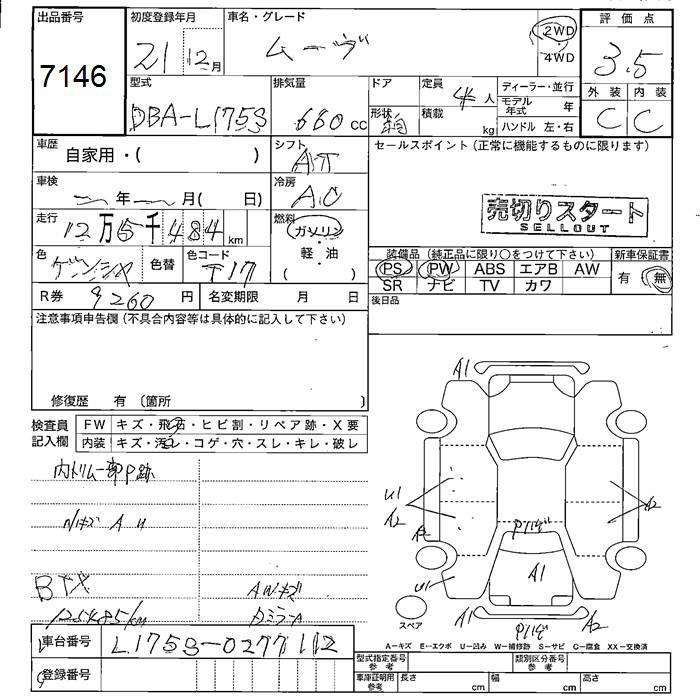 出品番号
7146
初度登録年月
21 12月
車名・グレード
ムーヴ
2WD
4WD
評価点
3.5
外装 内装
C C
型式
DBA-L175S
排気量
680 cc
ドア
形状
定員
4人
積載
kg
ディーラー・並行
モデル年式 年
ハンドル 左・右
車歴
自家用・( )
シフト
AT
セールスポイント (正常に機能するものに限ります)
車検
年 月( 日)
冷房
AC
売切りスタート
SELLOUT
走行
12万5千484 km
燃料
ガソリン
軽・油
( )
色
色替
色コード
T17
装備品 (純正品に限り○をつけて下さい)
PS PW ABS エアB AW
SR ナビ TV カワ
新車保証書
有 無
R券 9260 円
名変期限 月 日
後日品
注意事項申告欄 (不具合内容等は具体的に記入して下さい)
修復歴 有 (箇所 )
検査員記入欄
FW キズ・飛石・ヒビ割・リペア跡・X要
内装 キズ・汚れ・コゲ・穴・スレ・キレ・破レ
内トリム一部P跡
小キズ A U
BTX
125485km
AWキズ
A1
U1
A2
A2
A2
U1
A1
A1
A2
スペア
A−キズ E−エクボ U−凹み W−補修跡 S−サビ C−腐食 XX−交換済
車台番号
L175S-0277112
登録番号
型式指定番号 参考
類別区分番号 参考
車庫証明用 参考
長さ cm
幅 cm
高さ cm